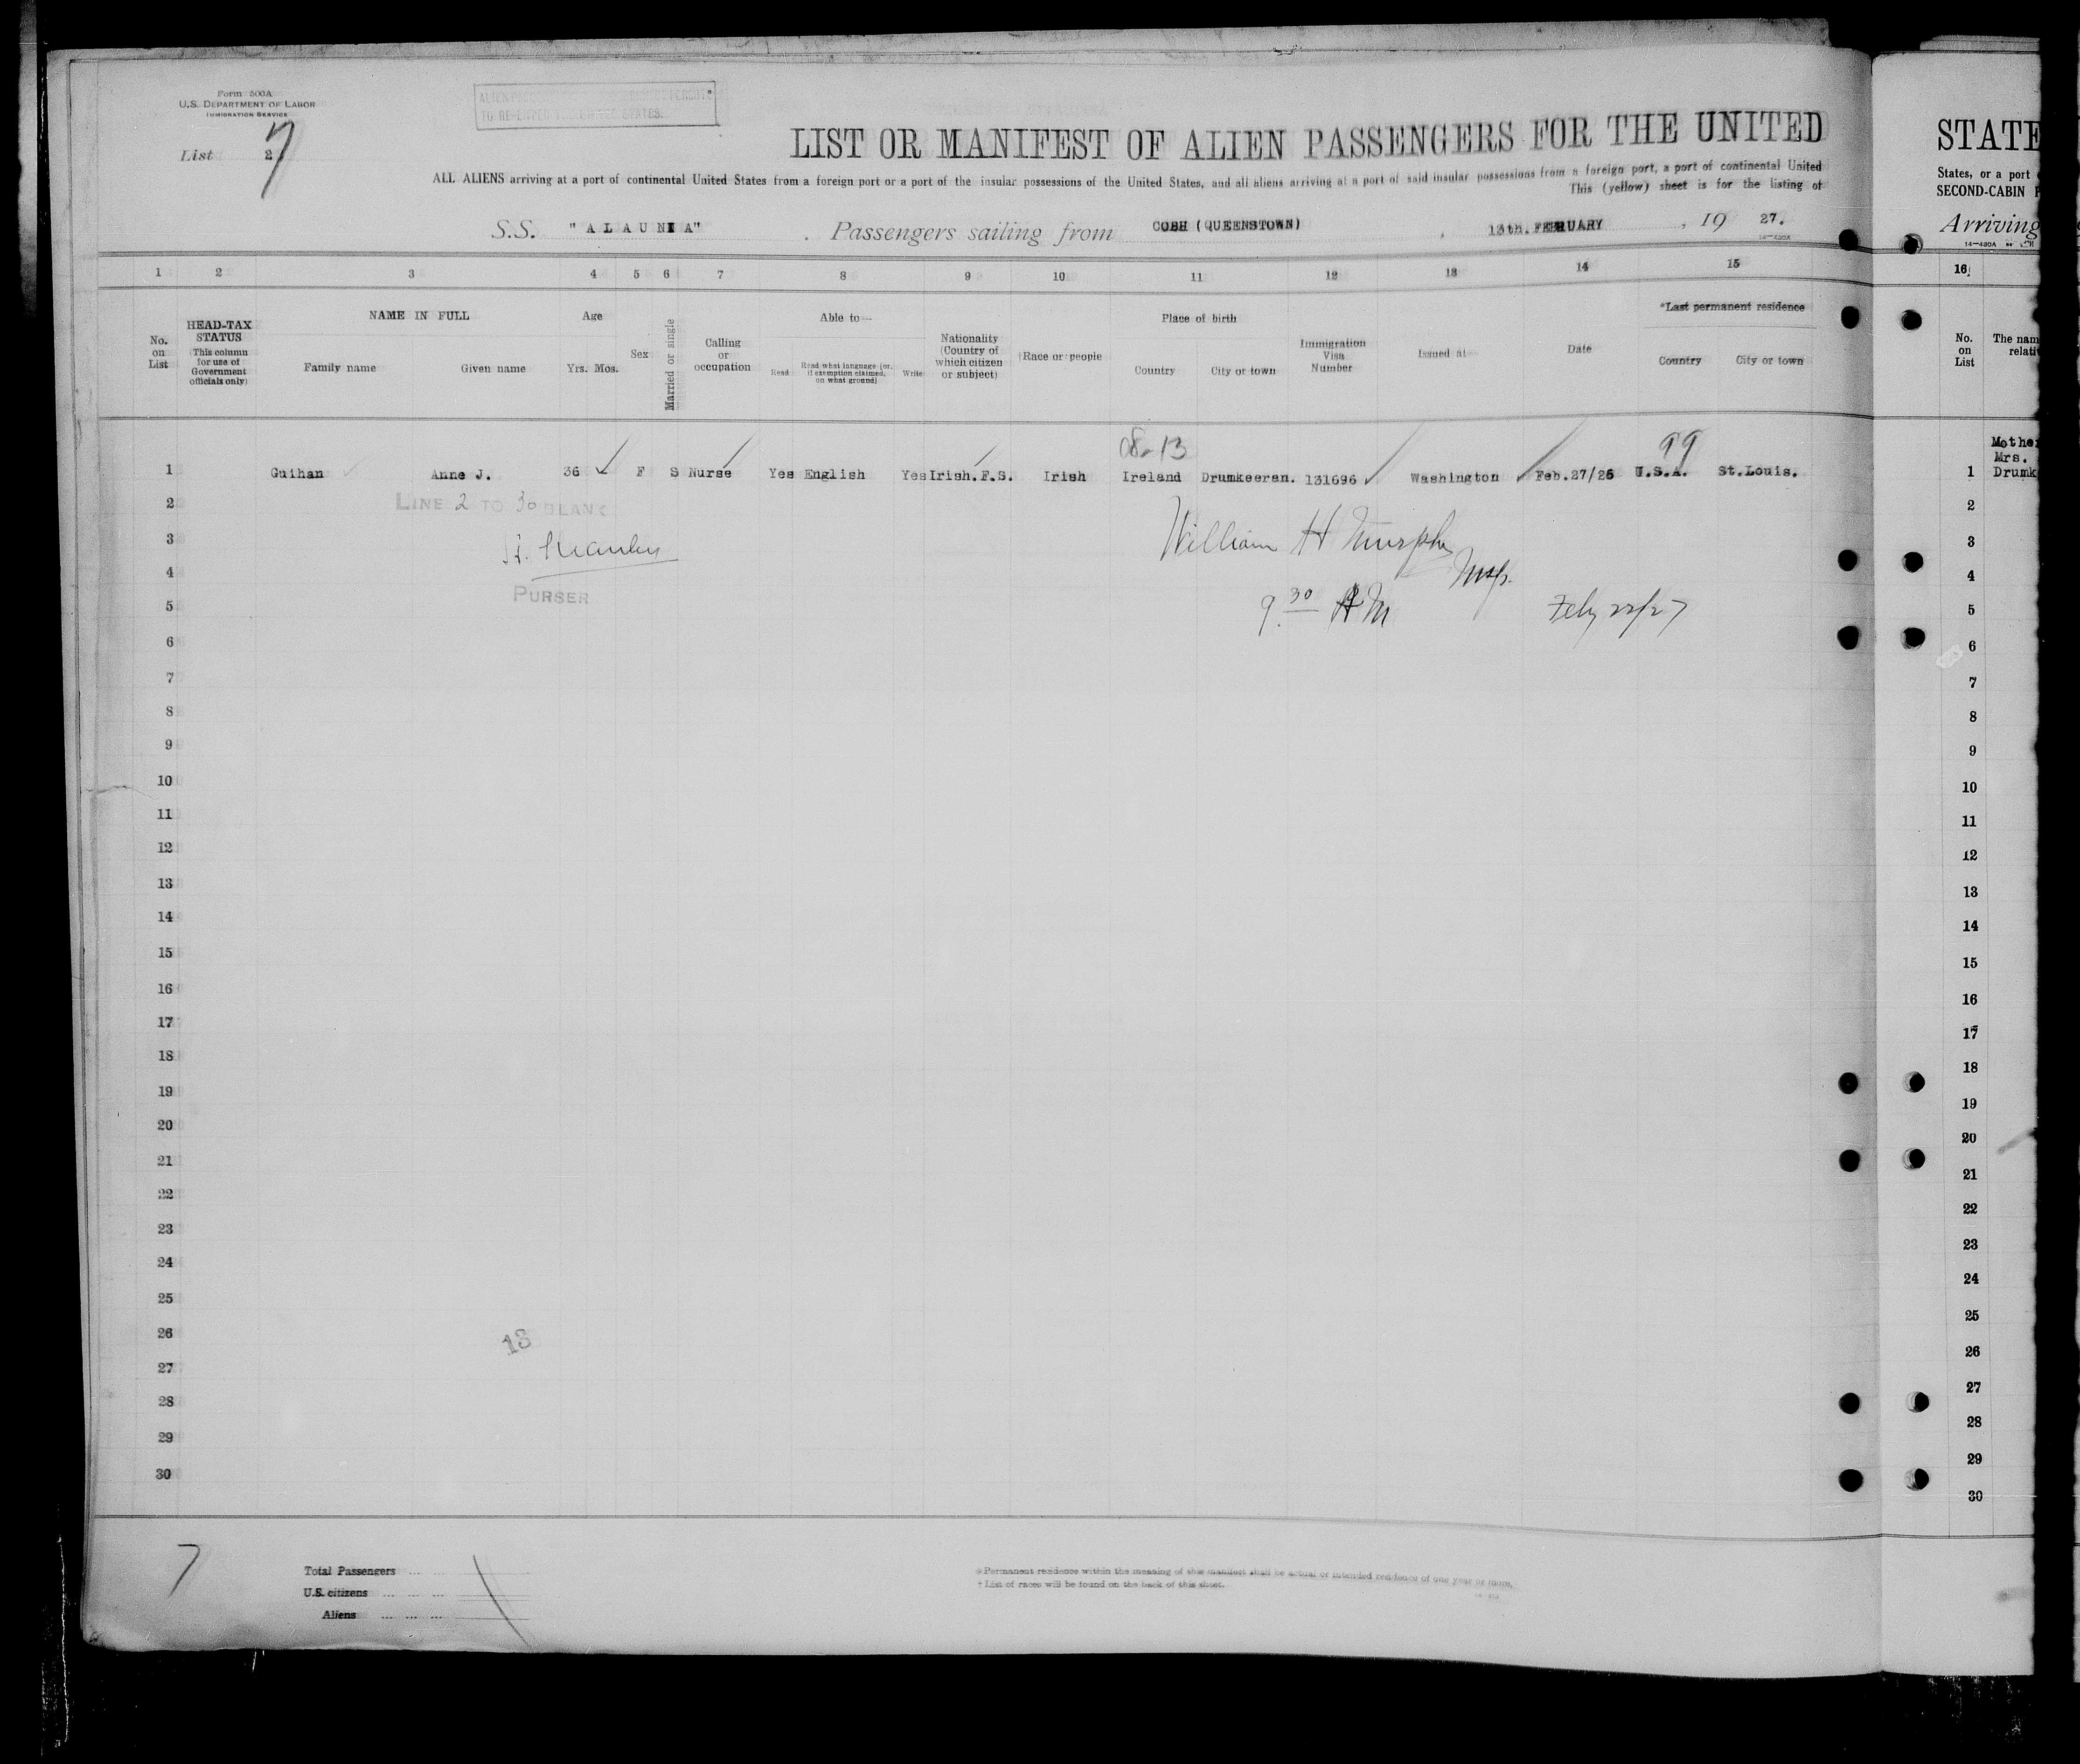 Form 500A
U.S. DEPARTMENT OF LABOR
IMMIGRATION SERVICE
List 2 7
TO RE-ENTER THE UNITED STATES.
LIST OR MANIFEST OF ALIEN PASSENGERS FOR THE UNITED
ALL ALIENS arriving at a port of continental United States from a foreign port or a port of the insular possessions of the United States, and all aliens arriving at a port of said insular possessions from a foreign port, a port of continental United
This (yellow) sheet is for the listing of
S.S. "ALAUNIA" . Passengers sailing from COBH (QUEENSTOWN) , 13th.FEBRUARY , 19 27.
1 2 3 4 5 6 7 8 9 10 11 12 13 14 15
No. on List
HEAD-TAX STATUS
(This column for use of Government officials only)
NAME IN FULL
Family name Given name
Age
Yrs. Mos.
Sex
Married or single
Calling or occupation
Able to—
Read Read what language (or, if exemption claimed, on what ground) Write
Nationality (Country of which citizen or subject)
†Race or people
Place of birth
Country City or town
Immigration Visa Number
Issued at—
Date
*Last permanent residence
Country City or town
99
1 Guihan Anne J. 36 F S Nurse Yes English Yes Irish.F.S. Irish Ireland Drumkeeran. 131696 Washington Feb.27/26 U.S.A. St.Louis.
2 LINE 2 TO 30 BLANK
3 William H Murphy
4 Insp.
PURSER
5 9.30 AM Feby 22/27
6
7
8
9
10
11
12
13
14
15
16
17
18
19
20
21
22
23
24
25
26
18
27
28
29
30
7
Total Passengers
U.S. citizens
Aliens
* Permanent residence within the meaning of this manifest shall be actual or intended residence of one year or more.
† List of races will be found on the back of this sheet.
STATE
States, or a port
SECOND-CABIN
Arriving
16
No. on List
The nam
relati
Mothe
Mrs.
1 Drumk
2
3
4
5
6
7
8
9
10
11
12
13
14
15
16
17
18
19
20
21
22
23
24
25
26
27
28
29
30